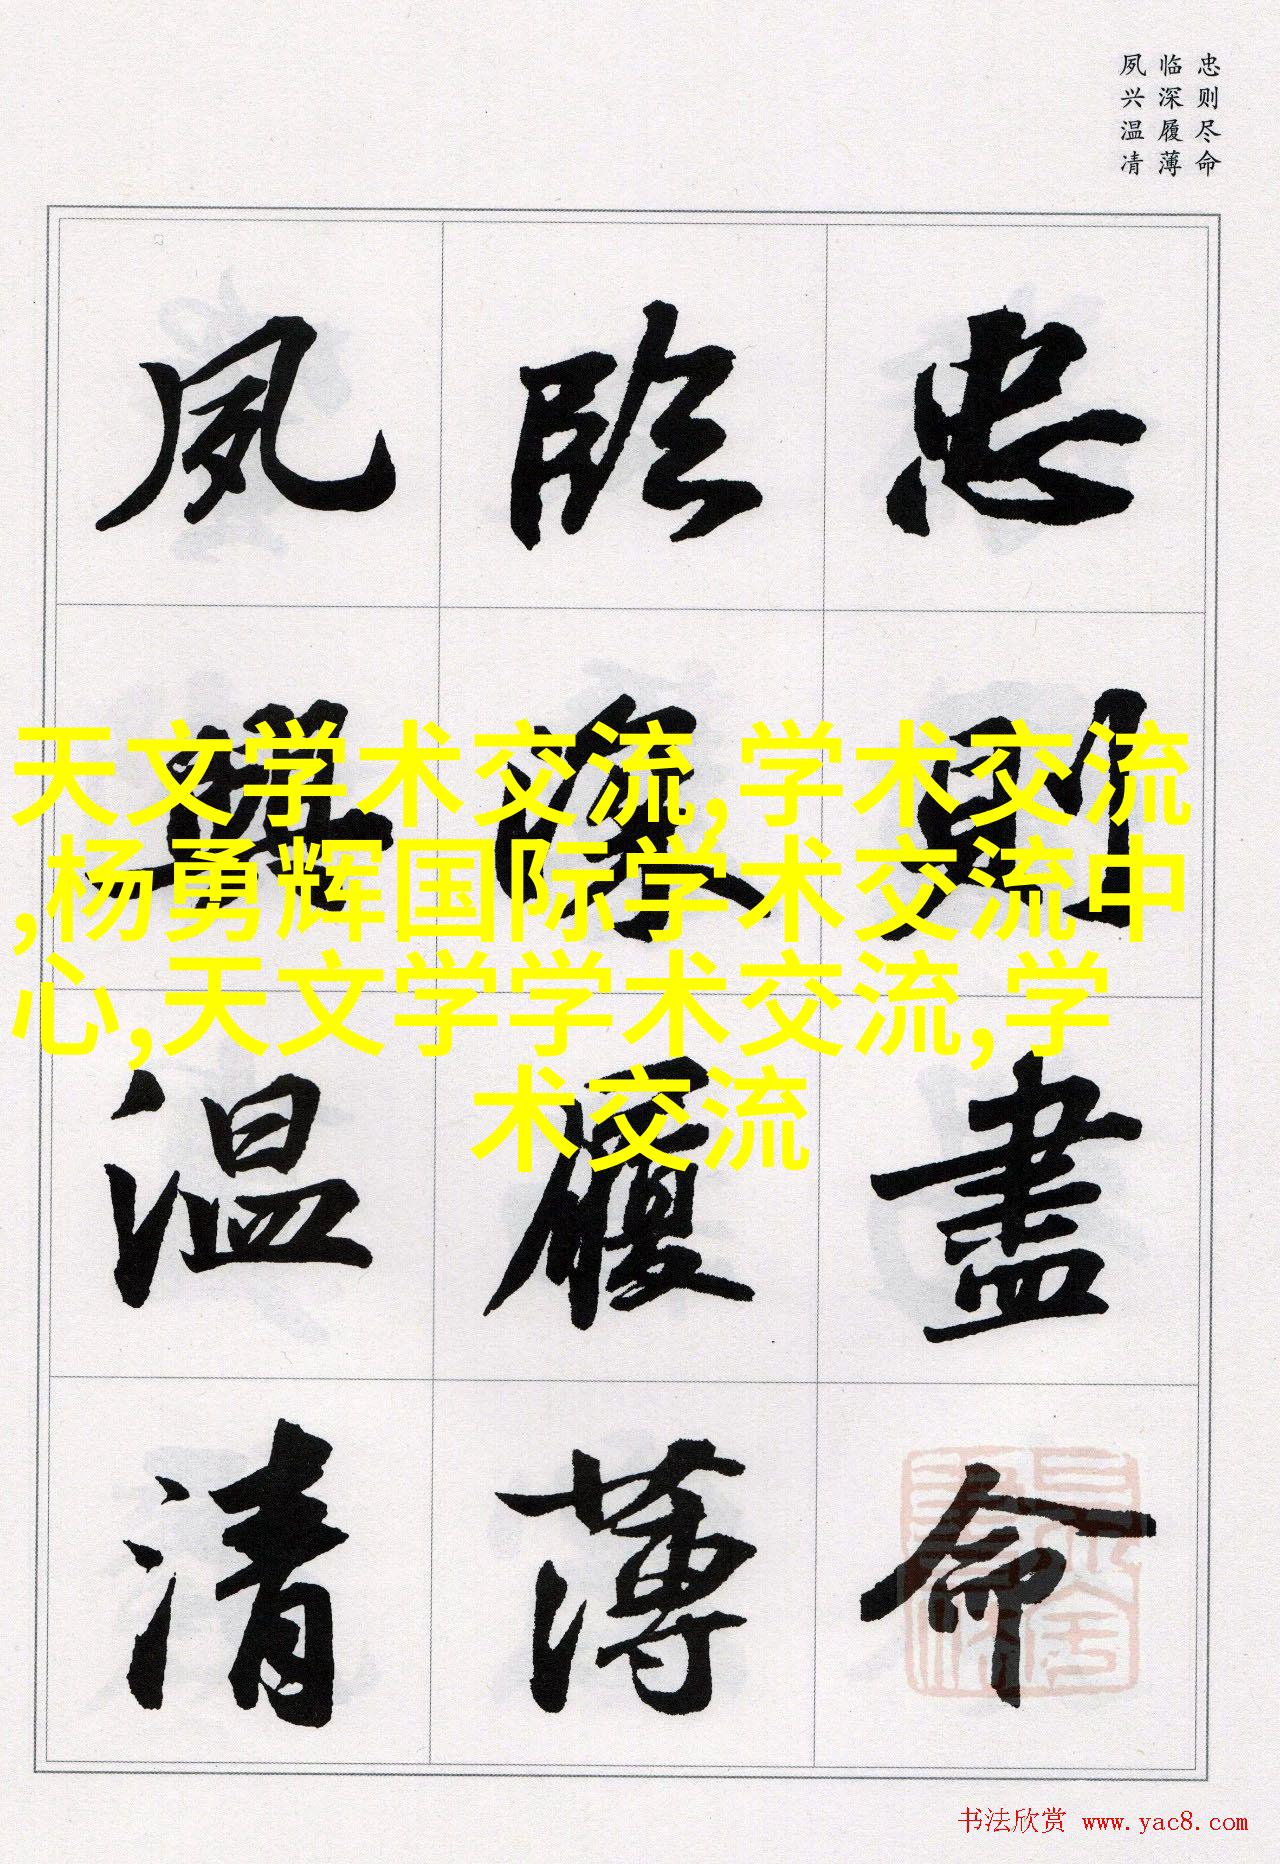 忠则尽命
临深履薄
夙兴温凊
忠則盡命
臨深履薄
夙興温清
天文学术交流,学术交流
,杨勇辉国际学术交流中
心,天文学学术交流,学
术交流
书法欣赏 www.yac8.com